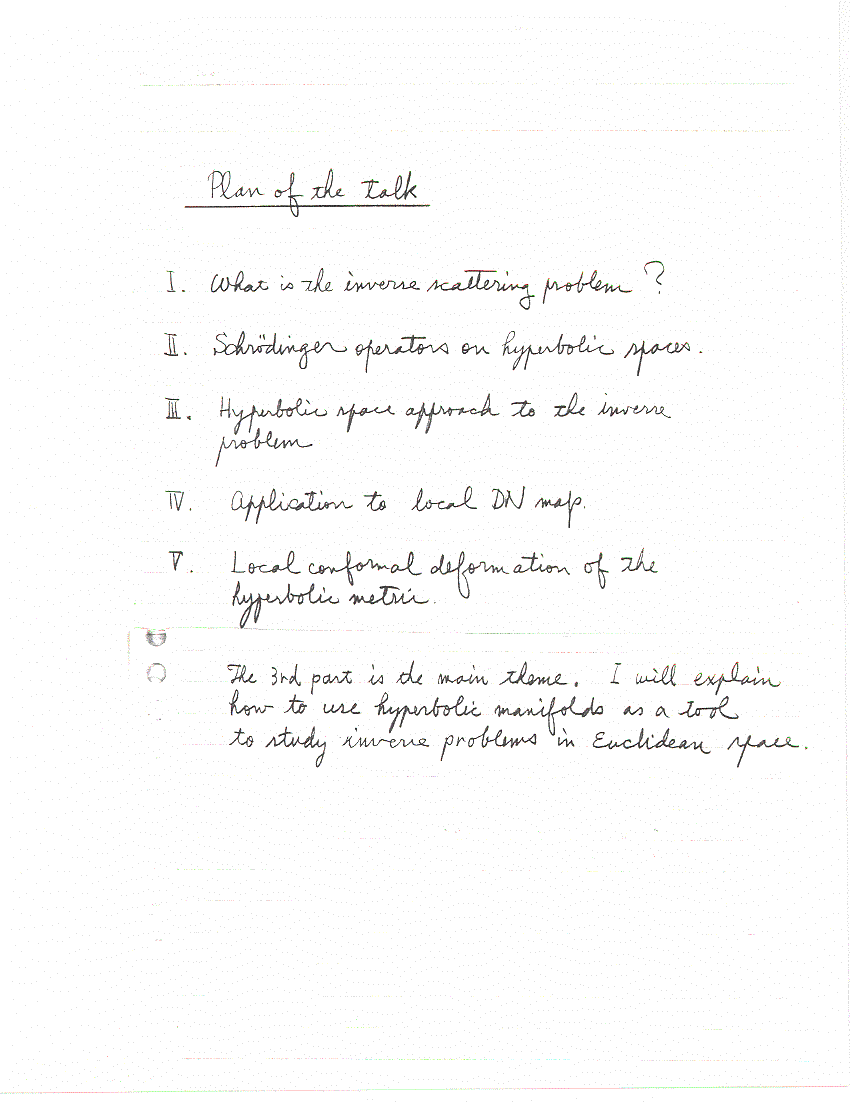 Plan of the talk
I. What is the inverse scattering problem ?
II. Schrödinger operators on hyperbolic spaces.
III. Hyperbolic space approach to the inverse
problem
IV. Application to local DN map.
V. Local conformal deformation of the
hyperbolic metric.
The 3rd part is the main theme. I will explain
how to use hyperbolic manifolds as a tool
to study inverse problems in Euclidean space.